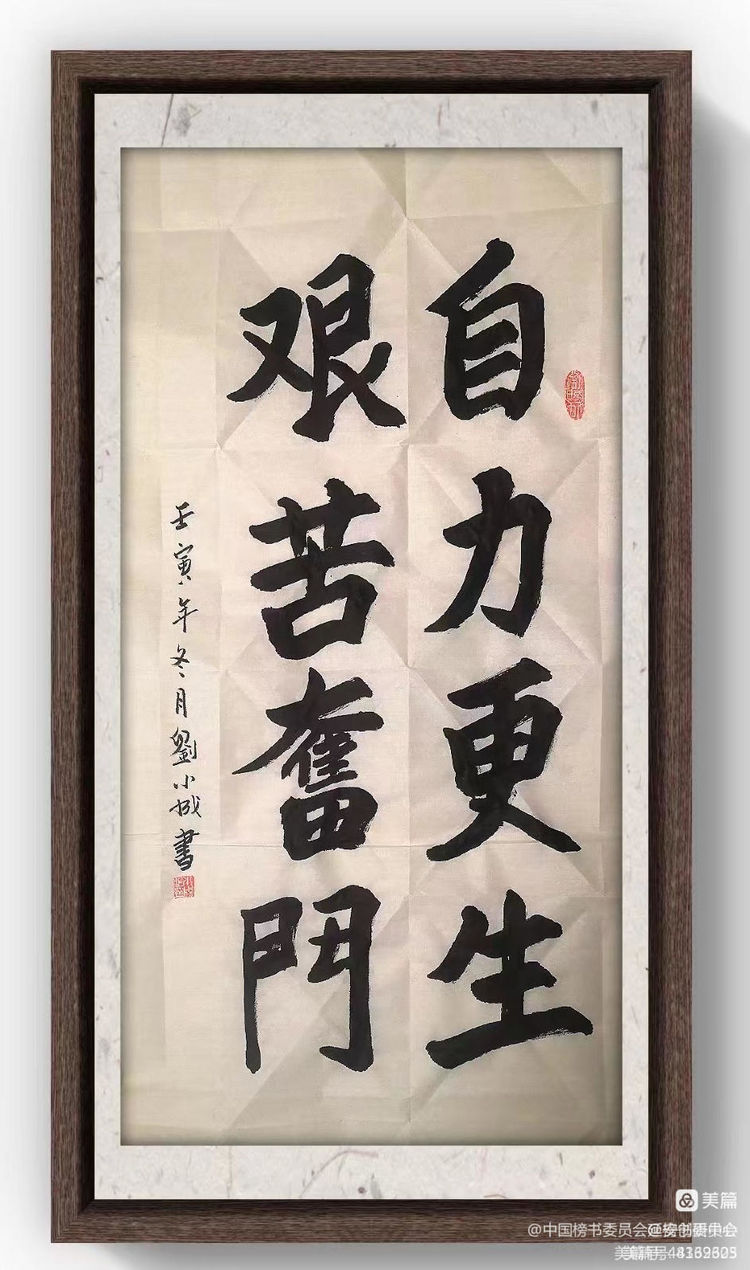 自力更生
艰苦奮鬥
壬寅年冬月劉小城書
美篇
@中国榜书委员会